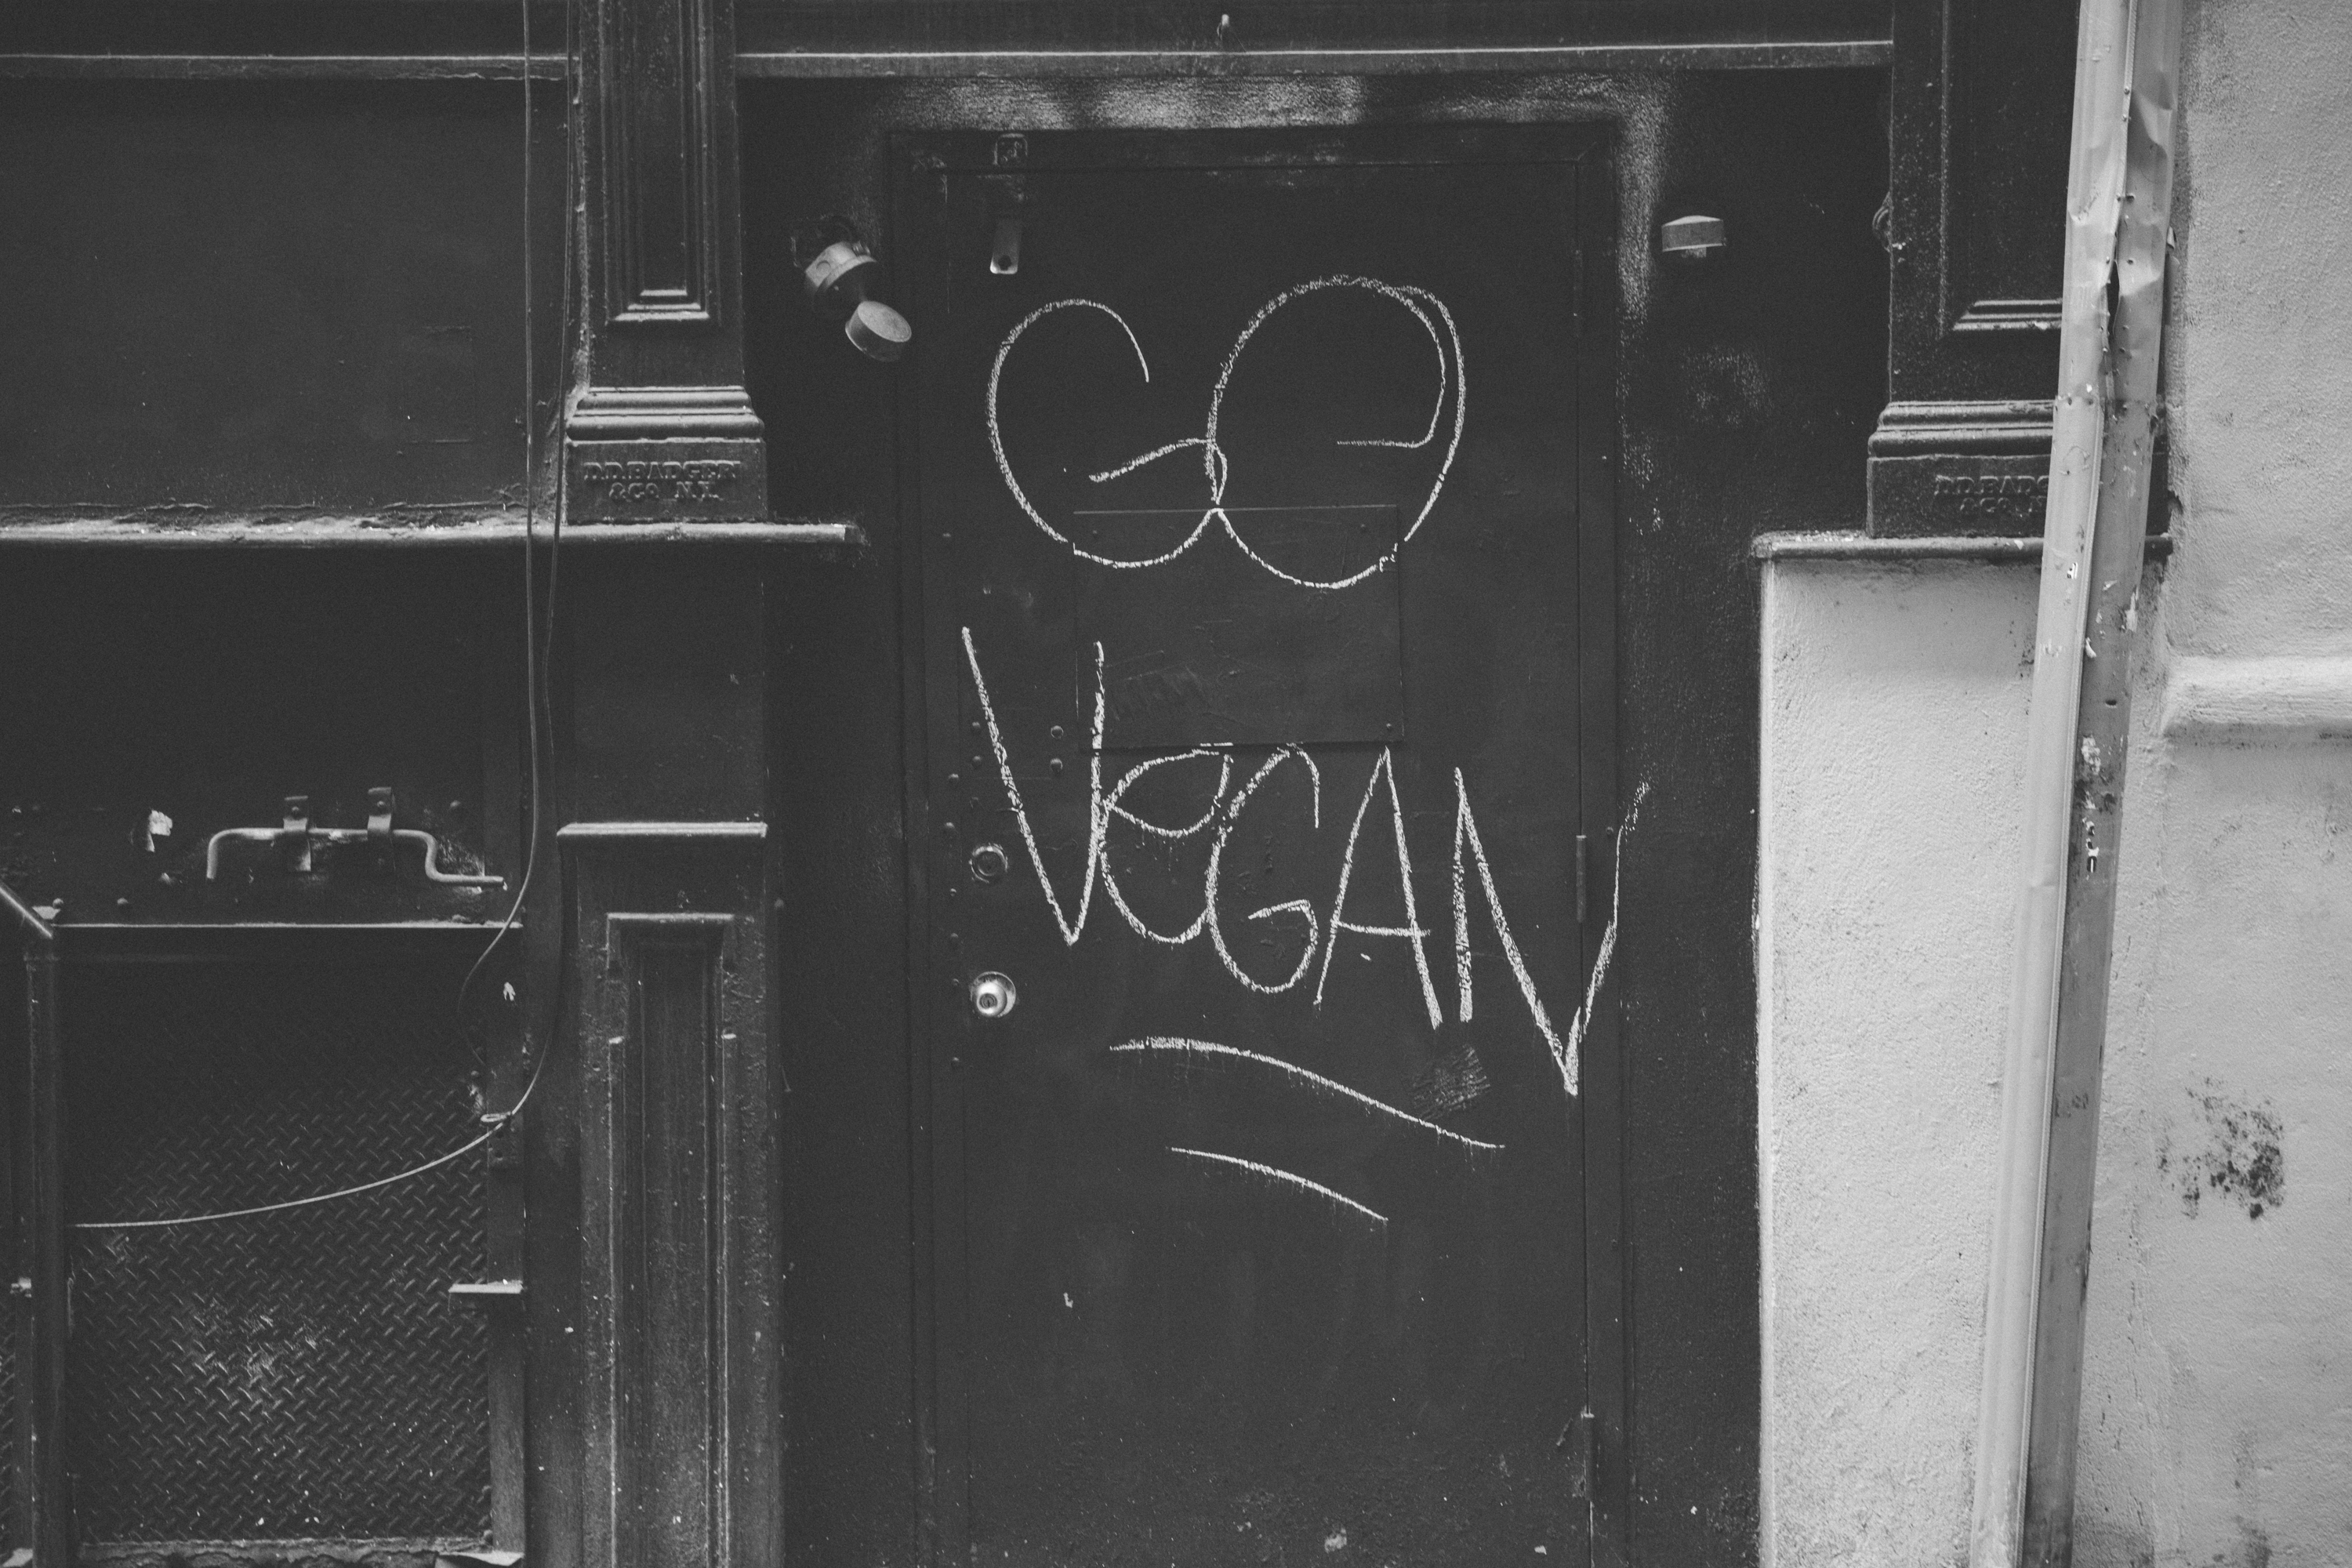 GO
VeGAN
D.D.BADGER
&CO N.Y.
D.D.BADG
&CO.N.